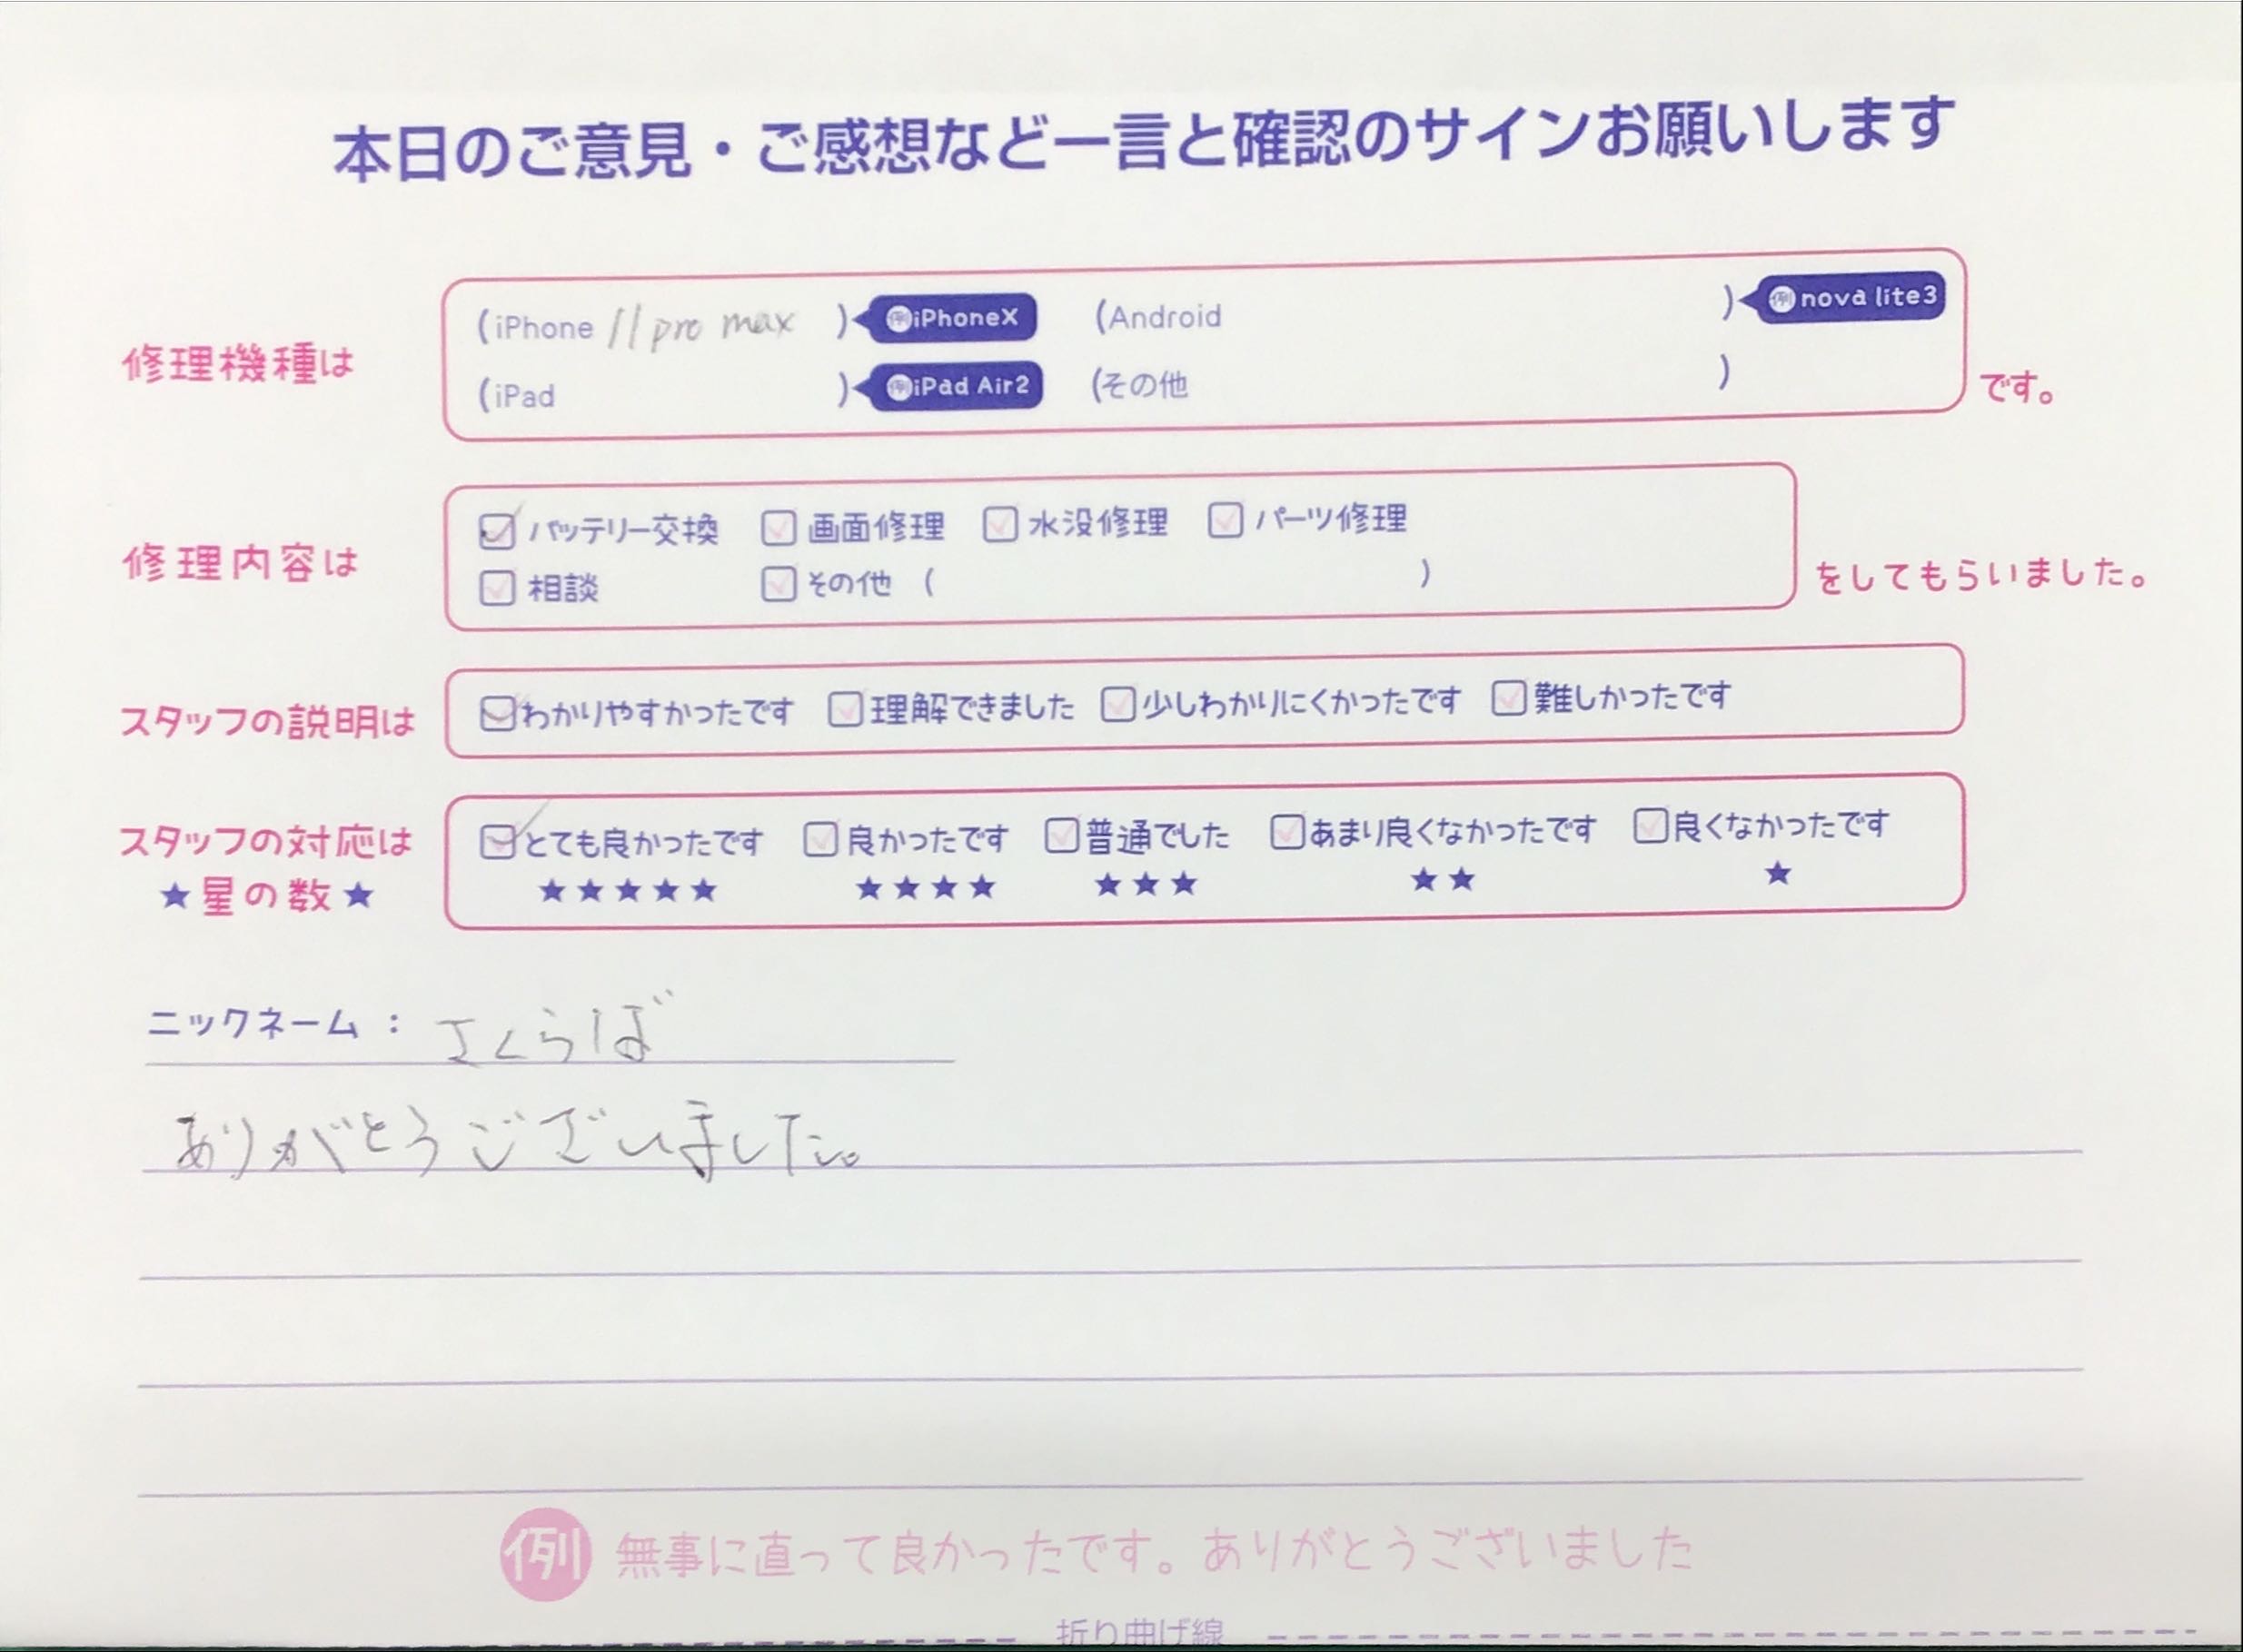 本日のご意見・ご感想など一言と確認のサインお願いします
修理機種は
(iPhone 11 pro max ) 例iPhoneX (Android ) 例nova lite3
(iPad ) 例iPad Air2 (その他 )
です。
修理内容は
バッテリー交換 画面修理 水没修理 パーツ修理
相談 その他 ( )
をしてもらいました。
スタッフの説明は
わかりやすかったです 理解できました 少しわかりにくかったです 難しかったです
スタッフの対応は
★星の数★
とても良かったです 良かったです 普通でした あまり良くなかったです 良くなかったです
★★★★★ ★★★★ ★★★ ★★ ★
ニックネーム : さくらぼ
ありがとうございました。
例 無事に直って良かったです。ありがとうございました
折り曲げ線